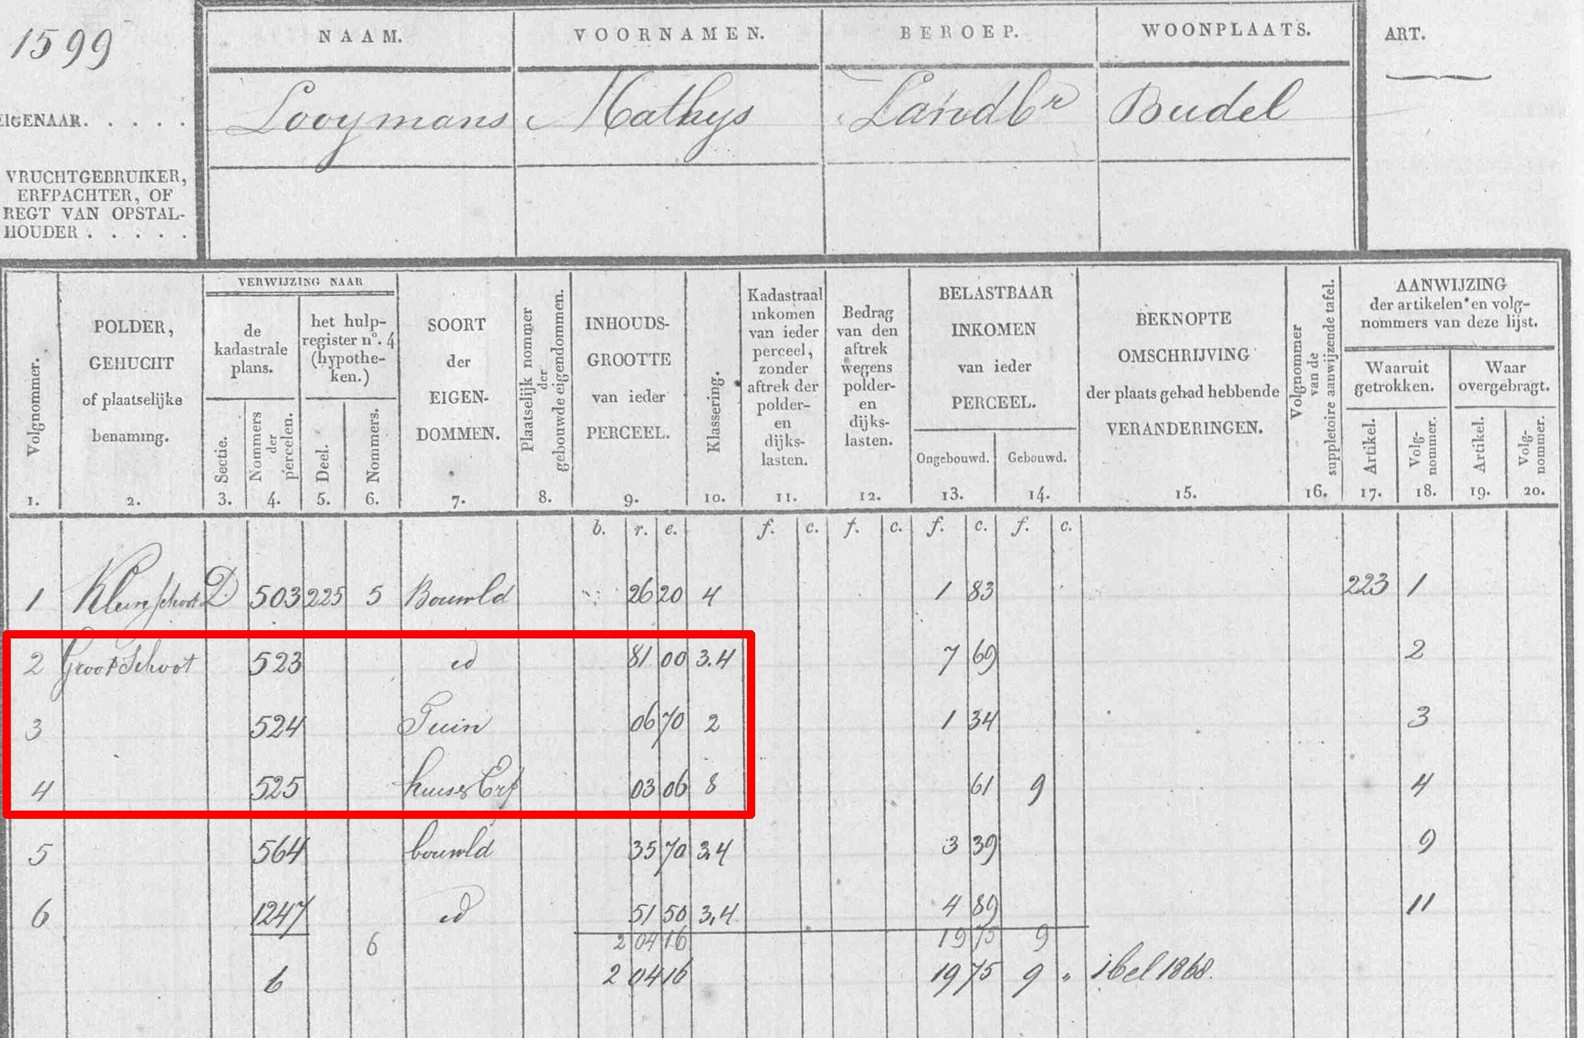 1599
NAAM. VOORNAMEN. BEROEP. WOONPLAATS. ART.
EIGENAAR. . . . . . Looymans Mathys Landbr Budel
VRUCHTGEBRUIKER,
ERFPACHTER, OF
REGT VAN OPSTAL-
HOUDER . . . . .
Volgnommer.
1.
POLDER,
GEHUCHT
of plaatselijke
benaming.
2.
VERWIJZING NAAR
de
kadastrale
plans.
Sectie.
3.
Nommers
der
percelen.
4.
het hulp-
register n°. 4
(hypothe-
ken.)
Deel.
5.
Nommers.
6.
SOORT
der
EIGEN-
DOMMEN.
7.
Plaatselijk nommer
der
gebouwde eigendommen.
8.
INHOUDS-
GROOTTE
van ieder
PERCEEL.
9.
Klassering.
10.
Kadastraal
inkomen
van ieder
perceel,
zonder
aftrek der
polder-
en
dijks-
lasten.
11.
Bedrag
van den
aftrek
wegens
polder-
en
dijks-
lasten.
12.
BELASTBAAR
INKOMEN
van ieder
PERCEEL.
Ongebouwd.
13.
Gebouwd.
14.
BEKNOPTE
OMSCHRIJVING
der plaats gehad hebbende
VERANDERINGEN.
15.
Volgnommer
van de
suppletoire aanwijzende tafel.
16.
AANWIJZING
der artikelen en volg-
nommers van deze lijst.
Waaruit
getrokken.
Artikel.
17.
Volg-
nommer.
18.
Waar
overgebragt.
Artikel.
19.
Volg-
nommer.
20.
b. r. e. f. c. f. c. f. c. f. c.
1 Kleinschoot D 503 225 5 Bouwld 26 20 4 1 83 223 1
2 Groot Schoot 523 id 81 00 3.4 7 69 2
3 524 Tuin 06 70 2 1 34 3
4 525 huis & Erf 03 06 8 61 9 4
5 564 bouwld 35 70 3,4 3 39 9
6 1247 id 51 50 3,4 4 89 11
6 2 04 16 19 75 9
6 2 04 16 19 75 9 " 1868.